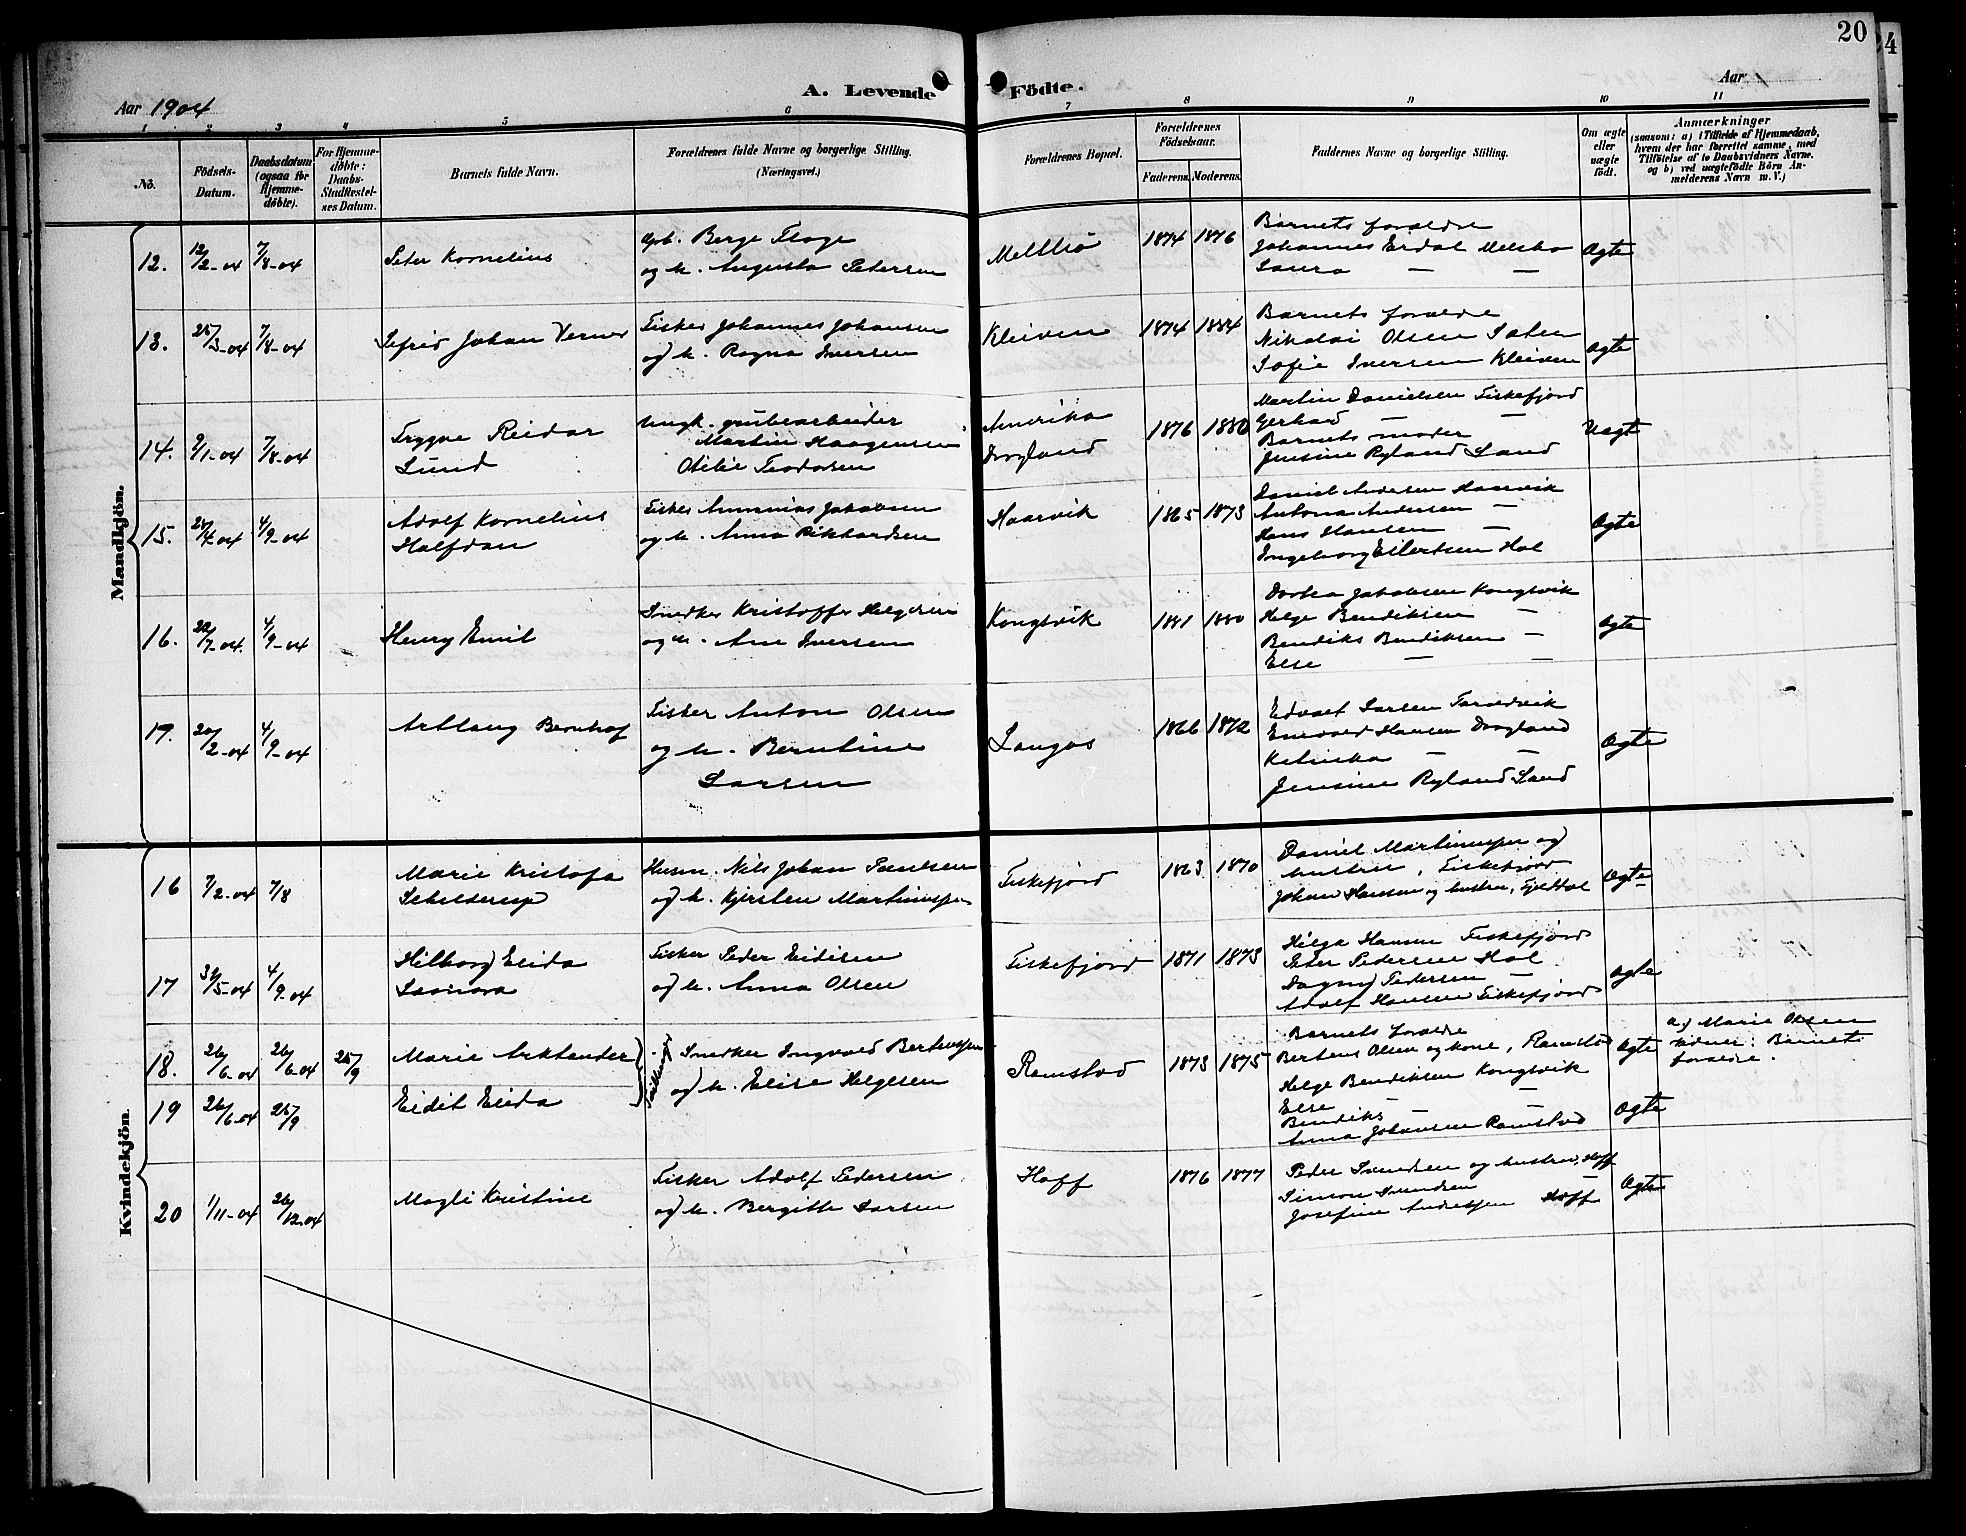 20
24
Aar 1904
A. Levende Födte.
Aar
1 2 3 4 5 6 7 8 9 10 11
No.
Födsels-
Datum.
Daabsdatum
(ogsaa for
Hjemme-
døbte).
For Hjemme-
döbte:
Daabs-
Stadfestel-
ses Datum.
Barnets fulde Navn.
Forældrenes fulde Navne og borgerlige Stilling.
(Næringsvei.)
Forældrenes Bopæl.
Forældrenes
Födselsaar.
Faderens. Moderens.
Faddernes Navne og borgerlige Stilling.
Om ægte
eller
uægte
født.
Anmærkninger
(saasom: a) i Tilfælde af Hjemmedaab,
hvem der har forrettet samme, med
Tilföielse af to Daabsvidners Navne,
og b) ved uægtefödte Börn An-
melderens Navn m. V.)
Mandkjön.
12. 12/2-04 7/8-04
Peter Kornelius
Berge Floge
og h. Augusta Petersen
1874 1876
Barnets forældre
Johannes Erdal
Laura — —
Ægte
13. 25/3-04 7/8-04
Sefrid Johan Verner
Fisker Johannes Johansen
og h. Ragna Iversen
Kleiven
1874 1884
Barnets forældre
Nikolai Olsen
Sofie Iversen Kleiven
Ægte
14. 9/1-04 7/8-04
Trygve Reidar
Lund
Ungk. grubearbeider
Martin Haagensen
Otelie Teodorsen
Amerika
Dragland
1876 1880
Martin Danielsen Fiskefjord
Gerhard — —
Barnets moder
Jensine Ryland Sand
Uægte
15. 28/4-04 4/9-04
Adolf Kornelius
Halfdan
Fisker Annanias Jakobsen
og h. Anna Rikhardsen
Haarvik
1865 1873
Daniel Andersen Haarvik
Antona Andersen —
Hans Hansen —
Ingeborg Eilertsen Hol
Ægte
16. 22/7-04. 4/9-04
Henry Emil
Snedker Kristoffer Helgesen
og h. Ane Iversen
Kongsvik
1881 1880
Dortea Jakobsen Kongsvik
Helge Bendiksen —
Bendiks Bendiksen —
Else — —
Ægte
19. 20/2-04 4/9-04
Artlang Bernhof
Fisker Anton Olsen
og h. Berntine
Larsen
Langas
1866 1872
Edvart Larsen
Enevold Hansen Dragland
— —
Jensine Ryland Sand
Ægte
Kvindekjön.
16 7/2-04 7/8
Marie Kristofa
Schelderup
Husm. Nils Johan Paulsen
og h. Kjersten Martinussen
Fiskefjord
1863 1870
Daniel Martinussen og
hustru, Fiskefjord
Johan Hansen og hustru, Fjeldal
Ægte
17 31/5-04 4/9-04
Hilborg Elida
Leonora
Fisker Peder Eidisen
og h. Anna Olsen
Fiskefjord
1871 1873
Helga Hansen Fiskefjord
Peter Pedersen Hol
Dagny Pedersen —
Adolf Hansen Fiskefjord
Ægte
18. 26/6-04 26/6-04 25/9
Marie Arktander
Snedker Ingvald Berteussen
og h. Elise Helgesen
Ramstad
1873 1875
Barnets forældre
Berteus Olsen og kone, Ramstad
Ægte
a) Marie Olsen
Vidner: Barnets
forældre.
19 26/6-04 25/9
Eidit Elida
Helge Bendiksen Kongsvik
Else — —
Bendiks —
Anna Johansen Ramstad
Ægte
20 1/11-04 26/12-04
Magli Kristine
Fisker Adolf Pedersen
og h. Bergitte Larsen
Hoff
1876 1877
Peder Svendsen og hustru, Hoff
Simon Svendsen —
Josefine Andressen Hoff
Ægte